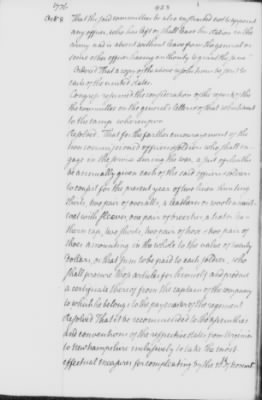 1776 953
Oct 8 That the said committee be also instructed not to appoint
any officer, who has left or shall leave his station in the
army and is absent without leave from the general or
some other officer having authority to grant the same
Ordered That a copy of the above resolutions be sent to
each of the united states.
Congress resumed the consideration of the report of the
the committee on the general's letter & of that which went
to the camp whereupon
Resolved, That for the further encouragement of the
non commissioned officers & soldiers who shall en
gage in the service during the war, a suit of clothes
be annually given each of the said officers & soldiers
to consist for the present year of two linen hunting
shirts, two pair of overalls, a leathern or woolen waist
coat with sleeves, one pair of breeches, a hat or lea-
thern cap, two shirts, two pair of hose & two pair of
shoes amounting in the whole to the value of twenty
dollars or that sum to be paid to each soldier, who
shall procure those articles for himself and produce
a certificate thereof from the captain of the company
to which he belongs to the paymaster of the regiment
Resolved That it be recommended to the assemblies
and conventions of the respective states from Virginia
to New hampshire inclusively to take the most
effectual measures for compleating by the 10th of Novem